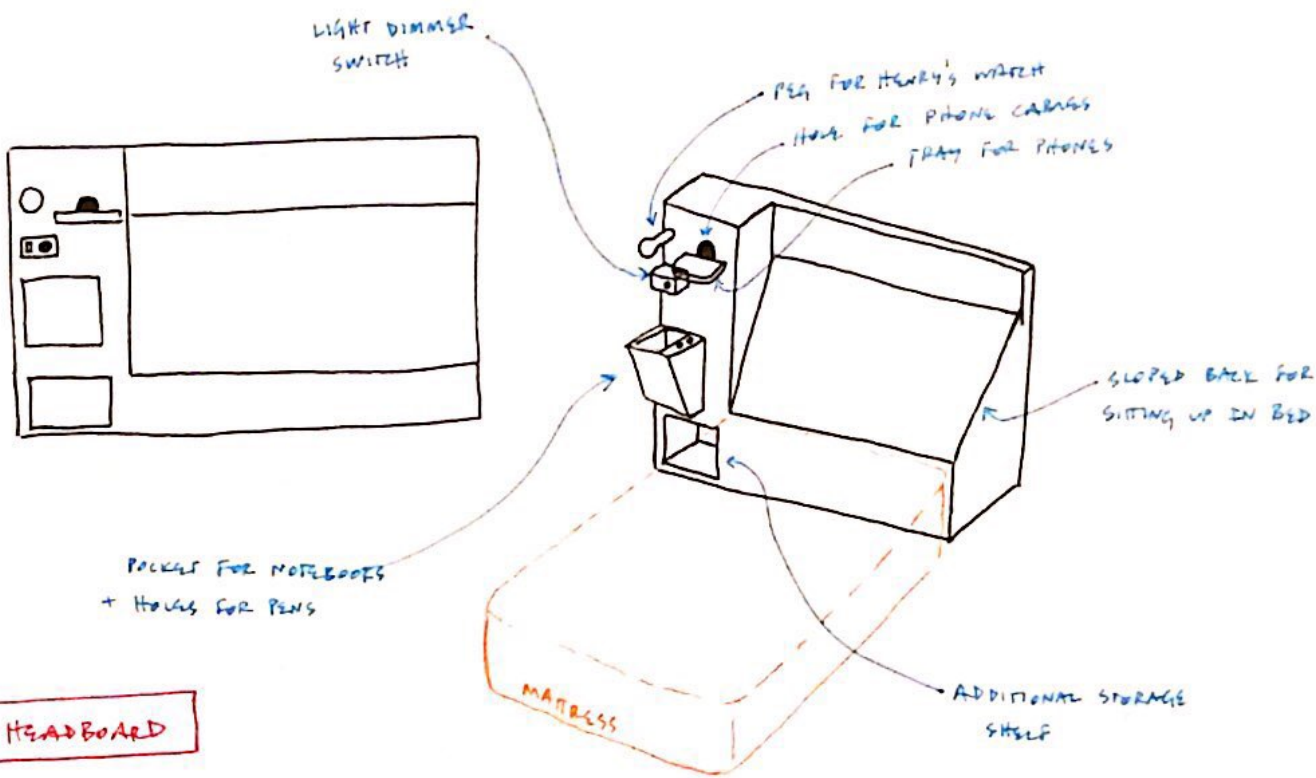 LIGHT DIMMER
SWITCH
PEG FOR HENRY'S WATCH
HOLE FOR PHONE CABLES
TRAY FOR PHONES
SLOPED BACK FOR
SITTING UP IN BED
POCKET FOR NOTEBOOKS
+ HOLES FOR PENS
MATRESS
ADDITIONAL STORAGE
SHELF
HEADBOARD